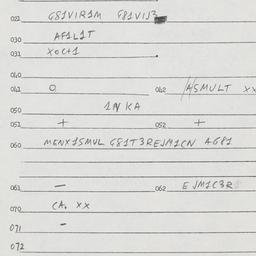 021 G81VIR1M G81VIJ3
030 AF1L1T
031 XOC41
040
041 O 042 ASMULT XX
050 1NKA
051 + 052 +
060 MENX15MUL G81T3REJM1CN AG81
061 — 062 EJM1C3R
070 CA. XX
071 -
072